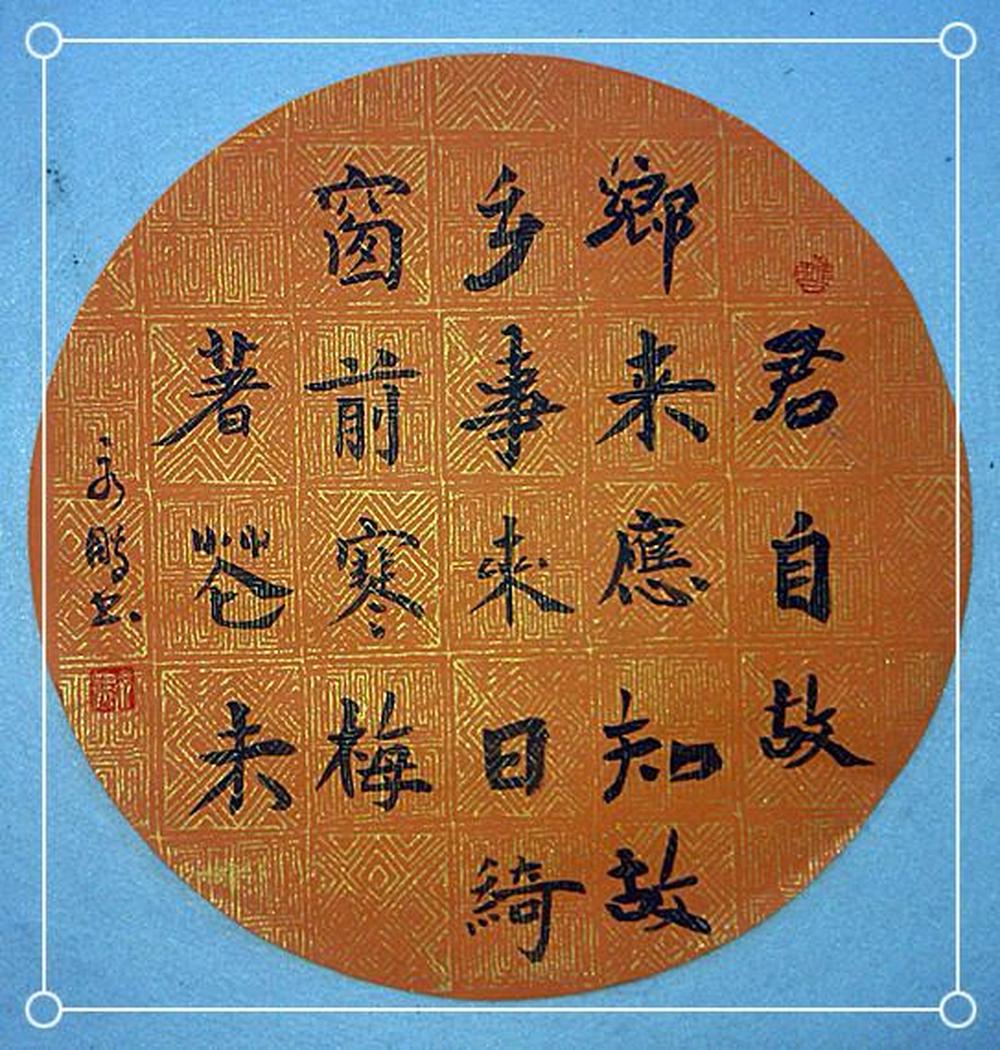 君自故
鄉来應知故
乡事來日綺
窗前寒梅
著花未
永鹏书